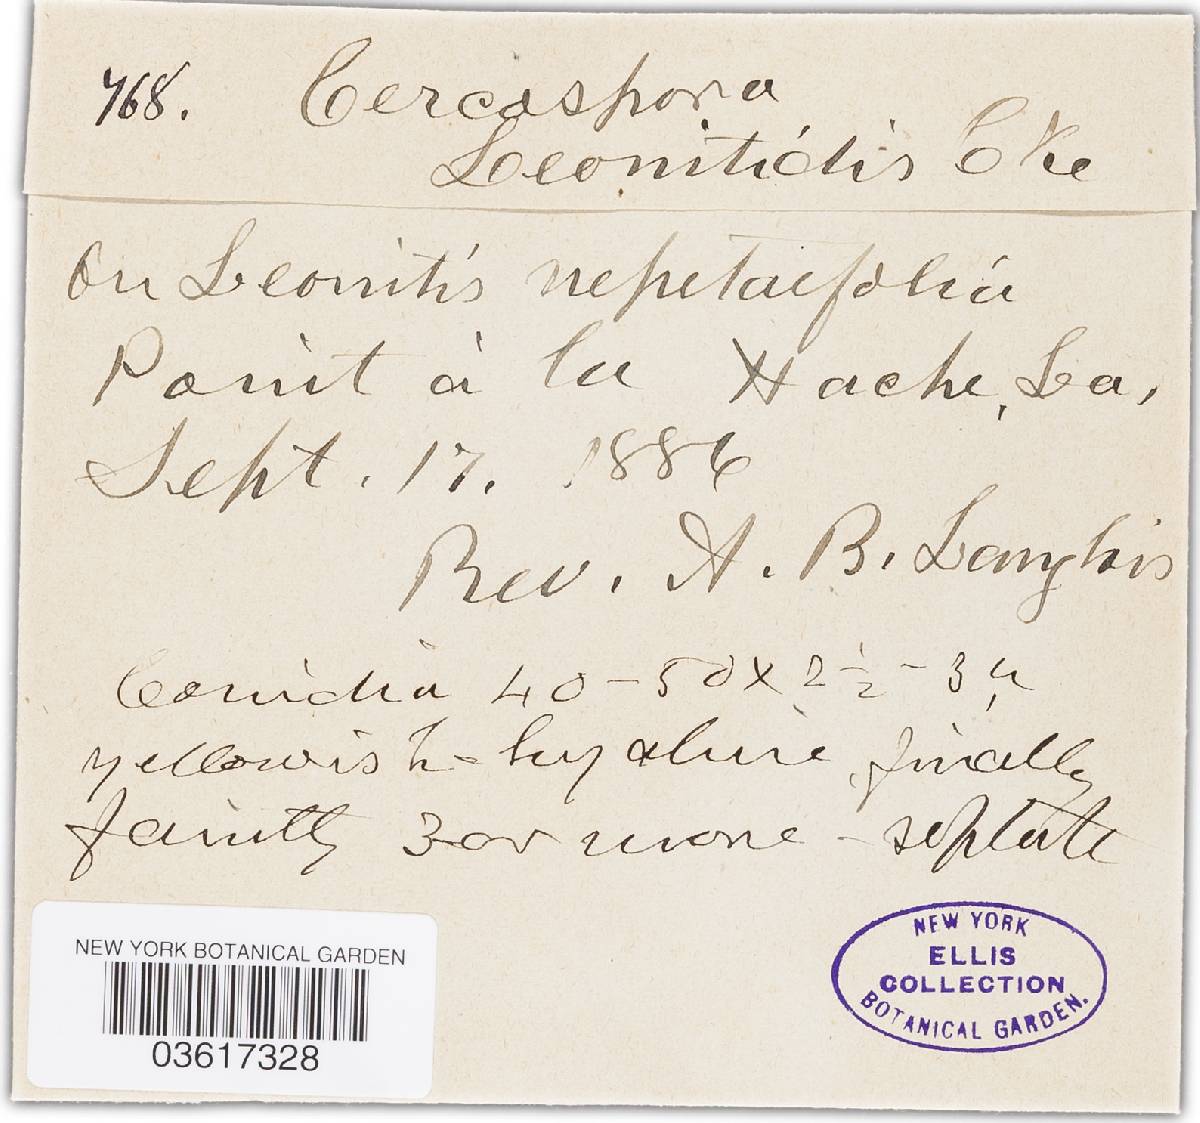 768. Cercospora
Leonitidis Cke
On Leonitis nepetaefolia
Point à la Hache, La,
Sept. 17. 1886
Rev. A. B. Langlois
Conidia 40-50 x 2½-3 µ
yellowish-hyaline, finally
faintly 3 or more-septate
NEW YORK BOTANICAL GARDEN
03617328
NEW YORK
ELLIS
COLLECTION
BOTANICAL GARDEN.